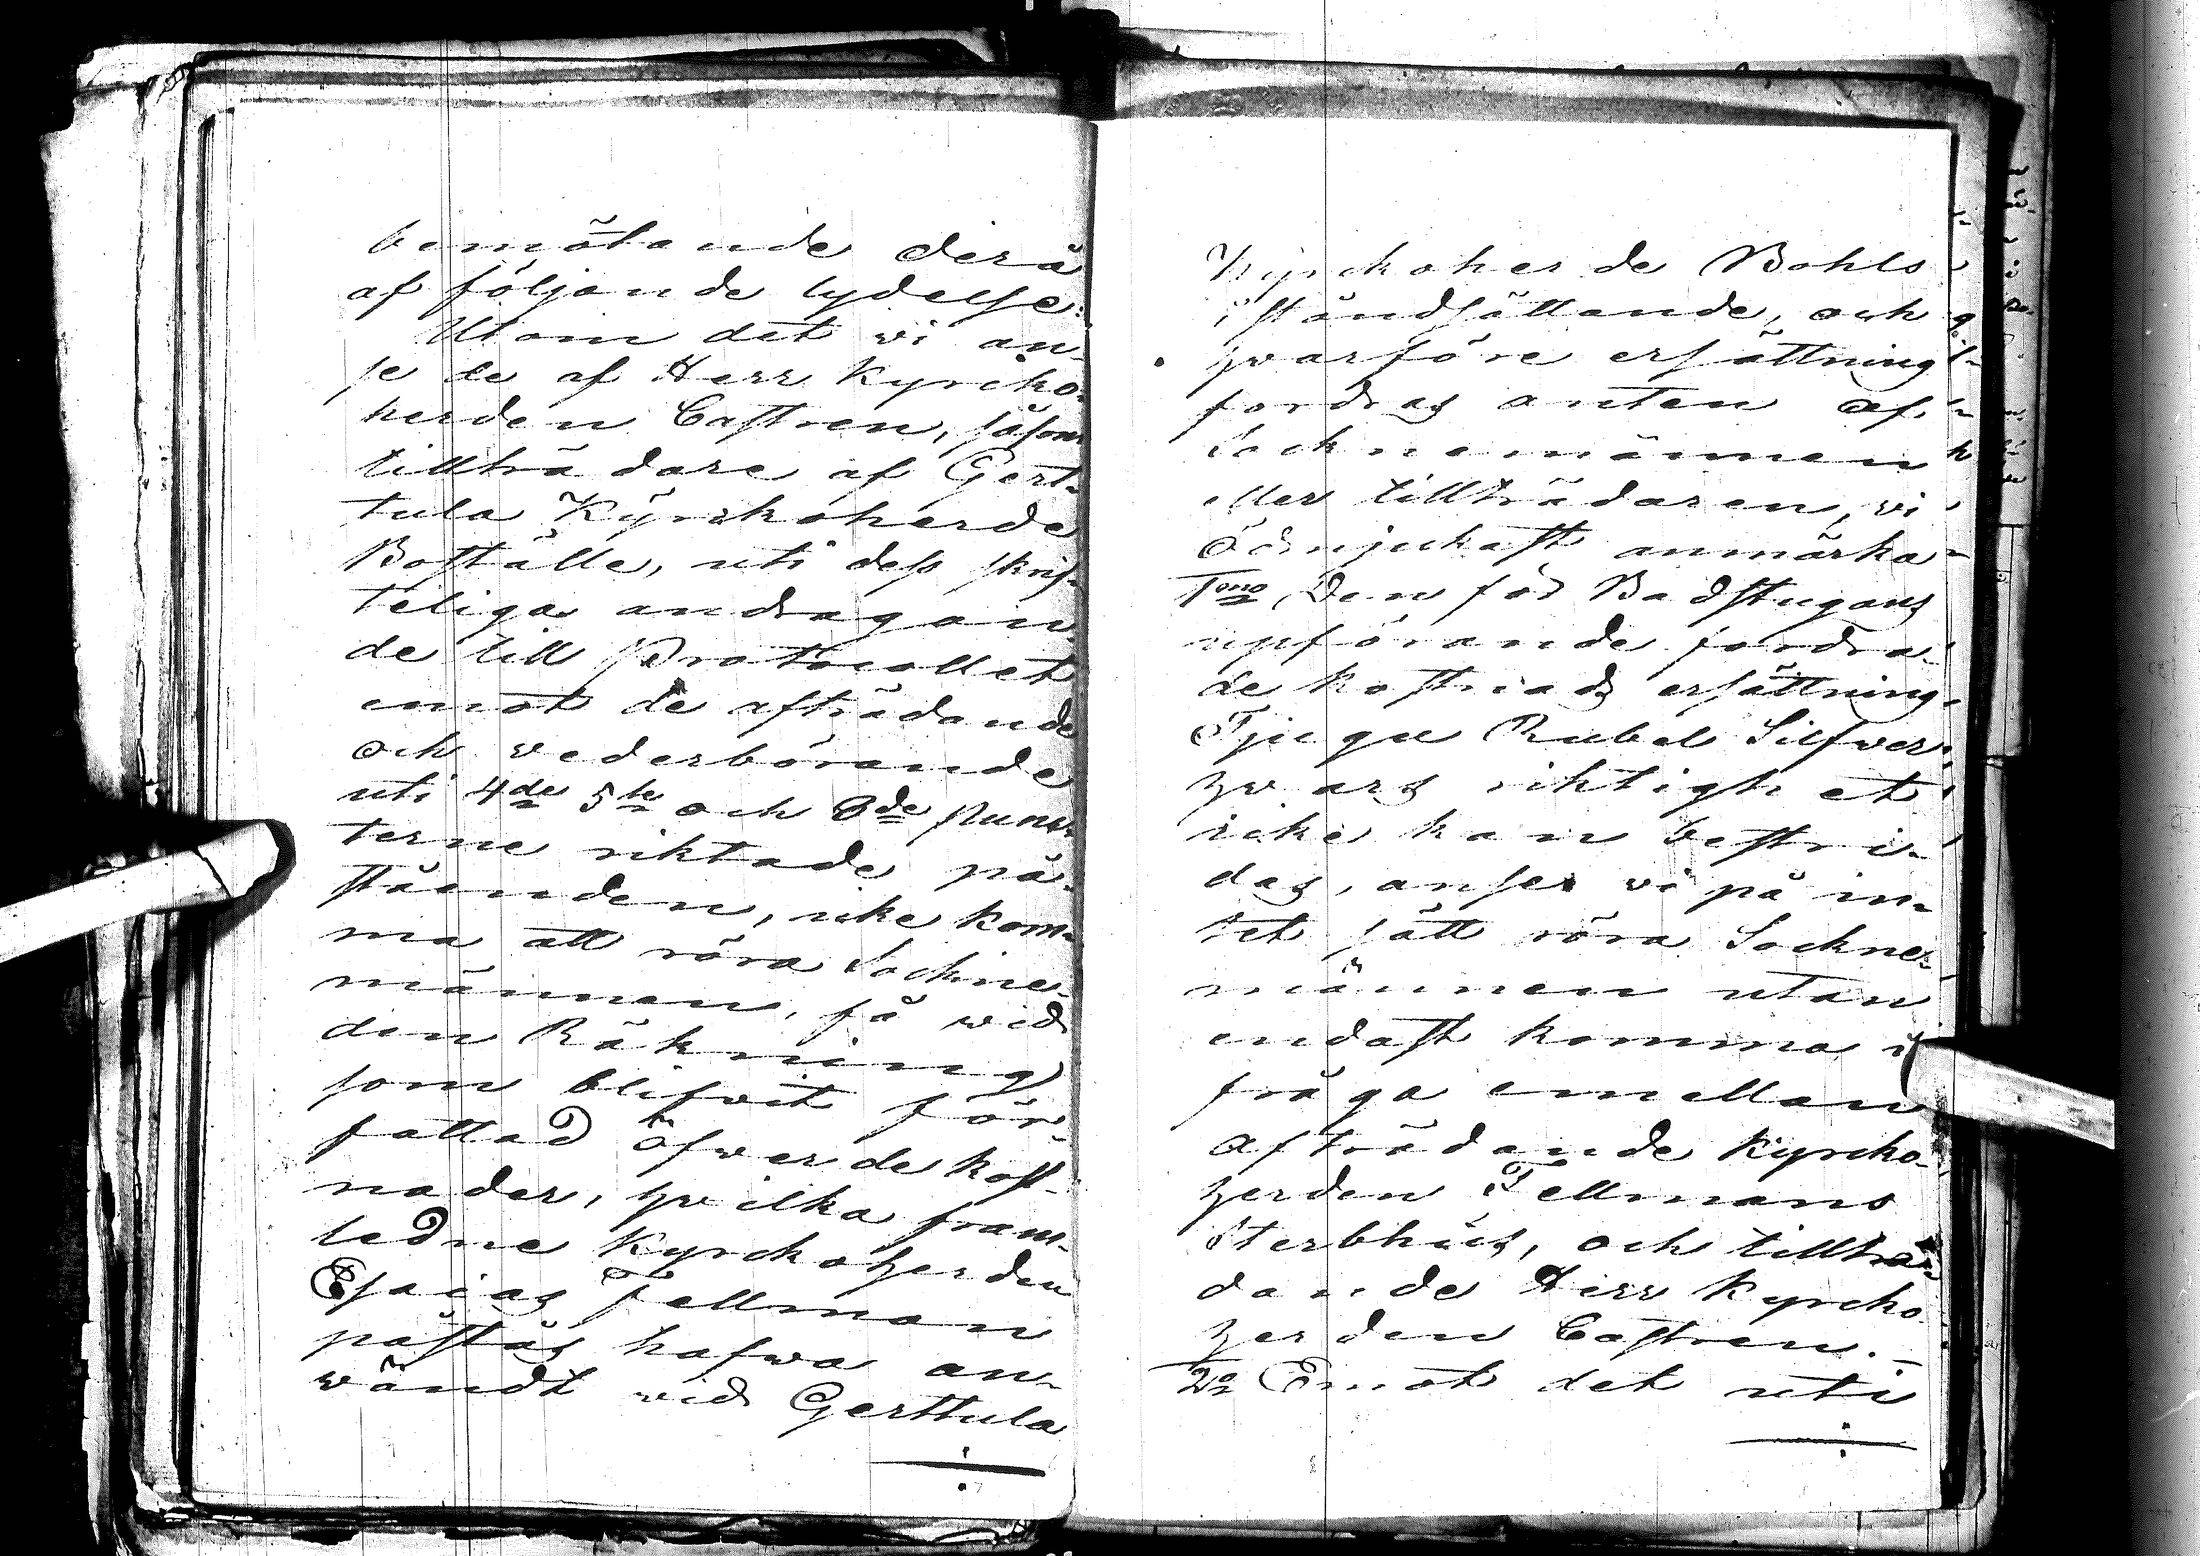 bemötande derå
af följande lydelse:
Utom det vi an-
se de af Herr Kyrcko-
herden Castren, såsom
tillträdare af Gert-
tula Kyrckoherde
Boställe, uti dess skrif-
teliga andragan-
de till Protocollet
emot de afträdande
och vederbörande
uti 4de 5te och 8de punk-
terne riktade på-
ståenden, icke kom-
ma att röra Sockne-
männen, så wid
den Räkning
som blifwit för-
fattad öfwer de kost-
nader, hwilka fram-
ledne Kyrckoherden
Esaias Fellman
påstås hafwa an-
wändt wid Gerttula
Kyrckoherde Bohls
iståndsättande, och
hwarföre ersättning
fordras anten af
Socknemännen
eller tillträdaren, vi
Ödmjukast anmärka
1mo, Den för Badstugans
upförande fordra-
de kostnads ersättning,
Tjugu Rubel Silfwer,
hwars riktighet
icke kan bestri-
das, anser vi på in-
tet sätt röra Sockne-
männen utan
endast komma i
fråga emellan
afträdande Kyrcko-
herden Fellmans
Sterbhus, och tillträ-
dande Herr Kyrcko-
herden Castren. –
2o Emot det uti